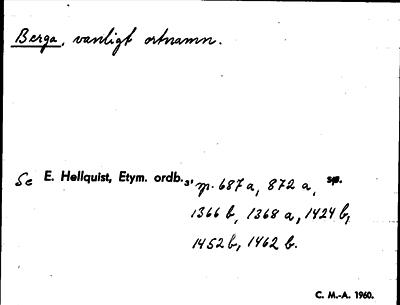 Berga, vanligt ortnamn.
Se E. Hellquist, Etym. ordb.3, p. 687 a, 872 a, sp.
1366 b, 1368 a, 1424 b,
1452 b, 1462 b.
C. M.-A. 1960.